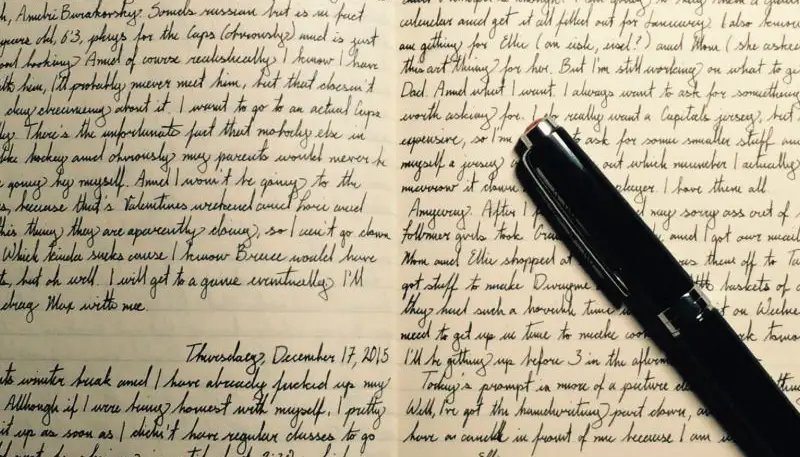 h, André Burakovsky. Sounds russian but is in fact
years old, 6'3, plays for the Caps (obviously) and is just
ood looking. And of course realistically I know I have
ith him, I'll probably never meet him, but that doesn't
day dreaming about it. I want to go to an actual Caps
There's the unfortunate fact that nobody else in
like hockey and obviously my parents would never be
going by myself. And I won't be going to the
because that's Valentines weekend and and
this thing they are apparently doing, so I can't go down
Which kinda sucks cause I know Breece would have
but oh well. I will get to a game eventually. I'll
drag Max with me.
Thursday, December 17, 2015
winter break and I have already fucked up my
Although if I were being honest with myself, I pretty
it up as soon as I didn't have regular classes to go
calendar and get it all filled out for January. I also know
am getting for Ellie (an and Mom (she asked
this art thing for her. But I'm still working on what to ge
Dad. And what I want. I always want to ask for something
worth asking for. I really want a Capitals jersey, but
expensive, so I'm to ask for some smaller stuff and
myself a jersey out which number I actually
narrow it down player. I have them all
Anyway. After I my sorry ass out of
girls took and I got our mail
Mom and Ellie shopped at them off to
got stuff to make baskets of
they had such a horrible time it on Wedne
need to get up in time to make
I'll be getting up before 3 in the aftern
Today's prompt is more of a picture
Well, I've got the handwriting part down,
have a candle in front of me because I am